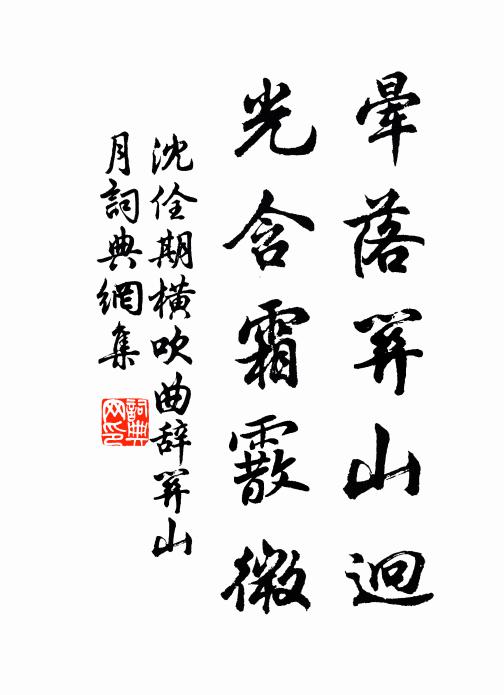 暈落關山迥
光含霜霰微
沈佺期橫吹曲辞關山
月詞典網集
詞典
网印